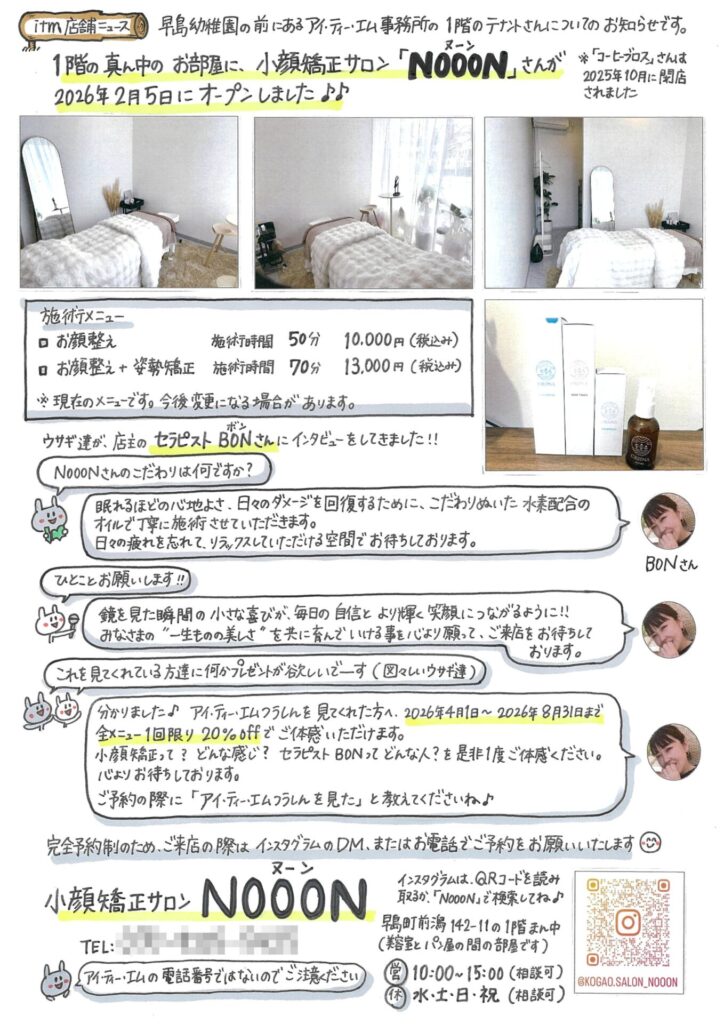 itm店舗ニュース 早島幼稚園の前にあるアイ・ティー・エム事務所の1階のテナントさんについてのお知らせです。
1階の真ん中のお部屋に、小顔矯正サロン「NOOON」さんが
ヌーン
2026年2月5日にオープンしました♪♪
※「コーヒーブロス」さんは
2025年10月に閉店
されました
施術メニュー
□ お顔整え 施術時間 50分 10.000円(税込み)
□ お顔整え+姿勢矯正 施術時間 70分 13,000円(税込み)
※現在のメニューです。今後変更になる場合があります。
ウサギ達が、店主のセラピストBONさんにインタビューをしてきました!!
ボン
NOOONさんのこだわりは何ですか?
眠れるほどの心地よさ、日々のダメージを回復するために、こだわりぬいた水素配合の
オイルで丁寧に施術させていただきます。
日々の疲れを忘れて、リラックスしていただける空間でお待ちしております。
BONさん
ひとことお願いします!!
鏡を見た瞬間の小さな喜びが、毎日の自信とより輝く笑顔につながるように!!
みなさまの"一生ものの美しさ"を共に育んでいける事を心より願って、ご来店をお待ちして
おります。
これを見てくれている方達に何かプレゼントが欲しいでーす(図々しいウサギ達)
分かりました♪ アイ・ティー・エムフラしんを見てくれた方へ、2026年4月1日~2026年8月31日まで
全メニュー1回限り20%offでご体感いただけます。
小顔矯正って?どんな感じ?セラピストBONってどんな人?を是非1度ご体感ください。
心よりお待ちしております。
ご予約の際に「アイ・ティー・エムフラしんを見た」と教えてくださいね♪
完全予約制のため、ご来店の際はインスタグラムのDM、またはお電話でご予約をお願いいたします
ヌーン
小顔矯正サロン NOOON
TEL:
アイ・ティー・エムの電話番号ではないのでご注意ください
インスタグラムは、QRコードを読み
取るか、「NOOON」で検索してね♪
早島町前潟142-11の1階まん中
(美容室とパン屋の間の部屋です)
営 10:00~15:00(相談可)
休 水・土・日・祝(相談可)
@KOGAO.SALON_NOOON